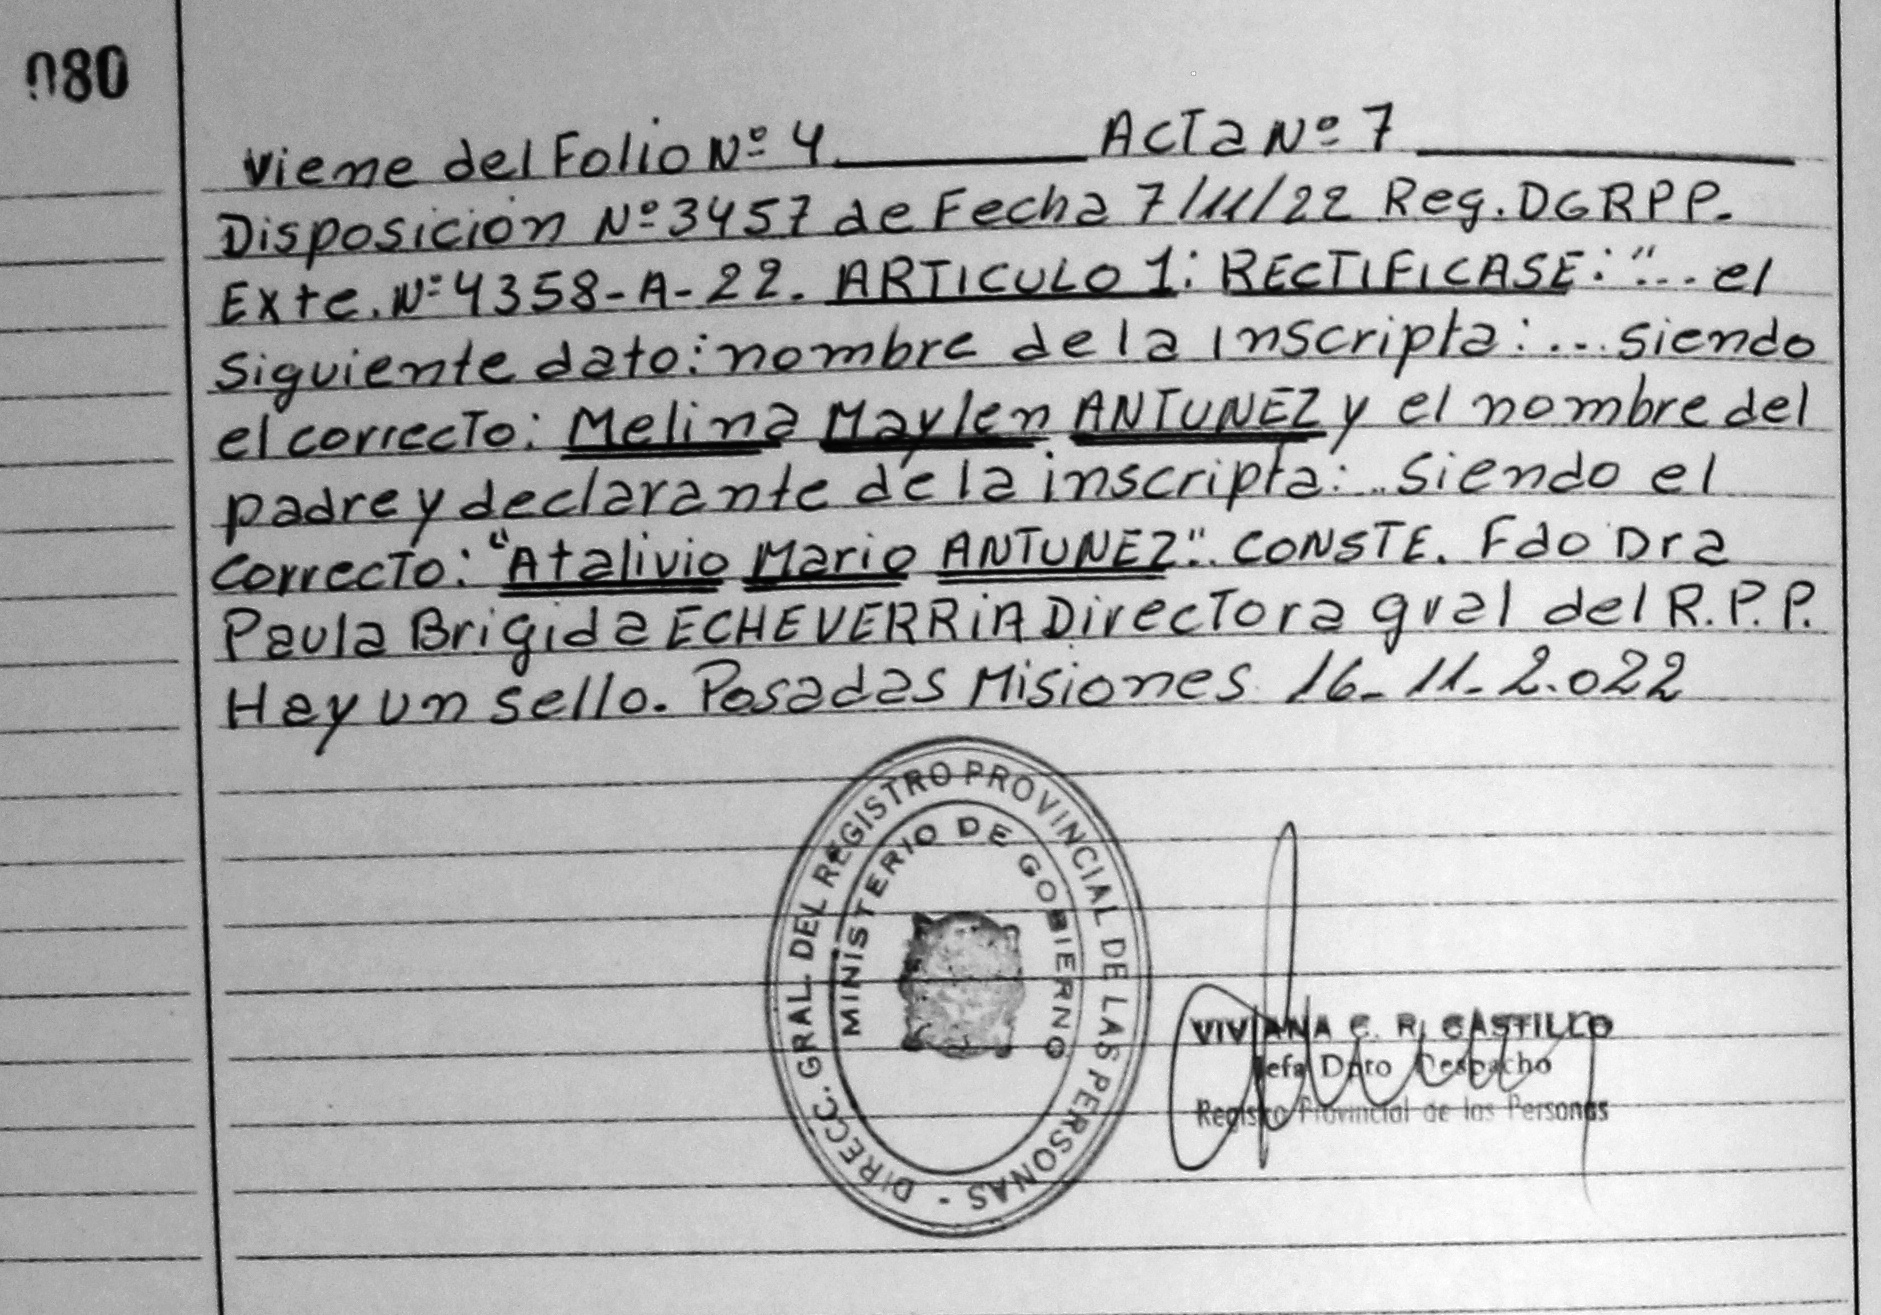 080
Viene del Folio Nº 4 ACTa Nº 7
Disposición Nº 3457 de Fecha 7/11/22 Reg. DGRPP.
Exte. Nº 4358-A-22. ARTICULO 1: RECTIFICASE: "... el
siguiente dato: nombre de la inscripta: ... siendo
el correcTo: Melina Maylen ANTUNEZ y el nombre del
padre y declarante de la inscripta: .. siendo el
correcTo: "Atalivio Mario ANTUNEZ". CONSTE. Fdo Dra
Paula Brigida ECHEVERRiA DirecTora gral del R.P.P.
Hay un sello. Posadas Misiones 16-11-2.022
DIRECC. GRAL. DEL REGISTRO PROVINCIAL DE LAS PERSONAS -
MINISTERIO DE GOBIERNO
VIVIANA C. R. CASTILLO
Jefa Dpto Despacho
Registro Provincial de las Personas